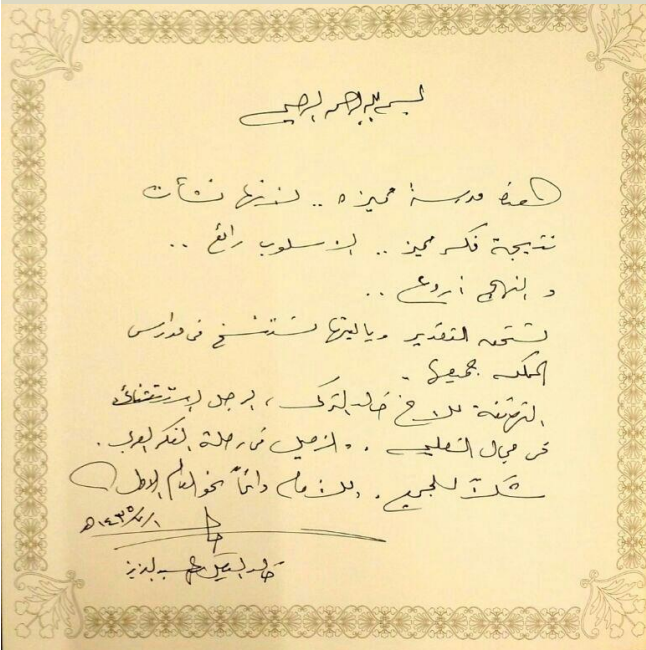 بسم الله الرحمن الرحيم
هذه مدرسة مميزه .. لأنها نشأت
نتيجة فكر مميز .. الاسلوب رائع ..
و النهج أروع ..
تستحق التقدير وياليتها تستنسخ في مدارس
المملكه جميعها .
التهنئة للاخ خالد التركي ، الرجل الاستثنائي
في مجال التعليم . والزميل في رحلة الفكر العربي .
شكراً للجميع . وللأمام دائماً نحو العالم الأول
خالد الفيصل بن عبدالعزيز